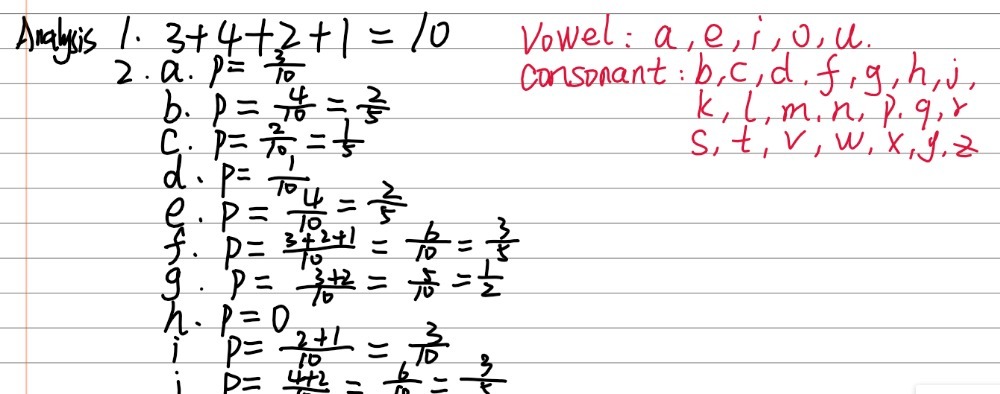 Analysis 1. 3+4+2+1 = 10
2. a. P = 3/10
b. P = 4/10 = 2/5
C. P = 2/10 = 1/5
d. P = 1/10
e. P = 4/10 = 2/5
f. P = 3+2+1/10 = 6/10 = 3/5
g. P = 3+2/10 = 5/10 = 1/2
h. P = 0
i P = 2+1/10 = 3/10
j P = 4+2/10 = 6/10 = 3/5
Vowel: a, e, i, o, u.
consonant: b, c, d, f, g, h, j,
k, l, m, n, p, q, r
s, t, v, w, x, y, z